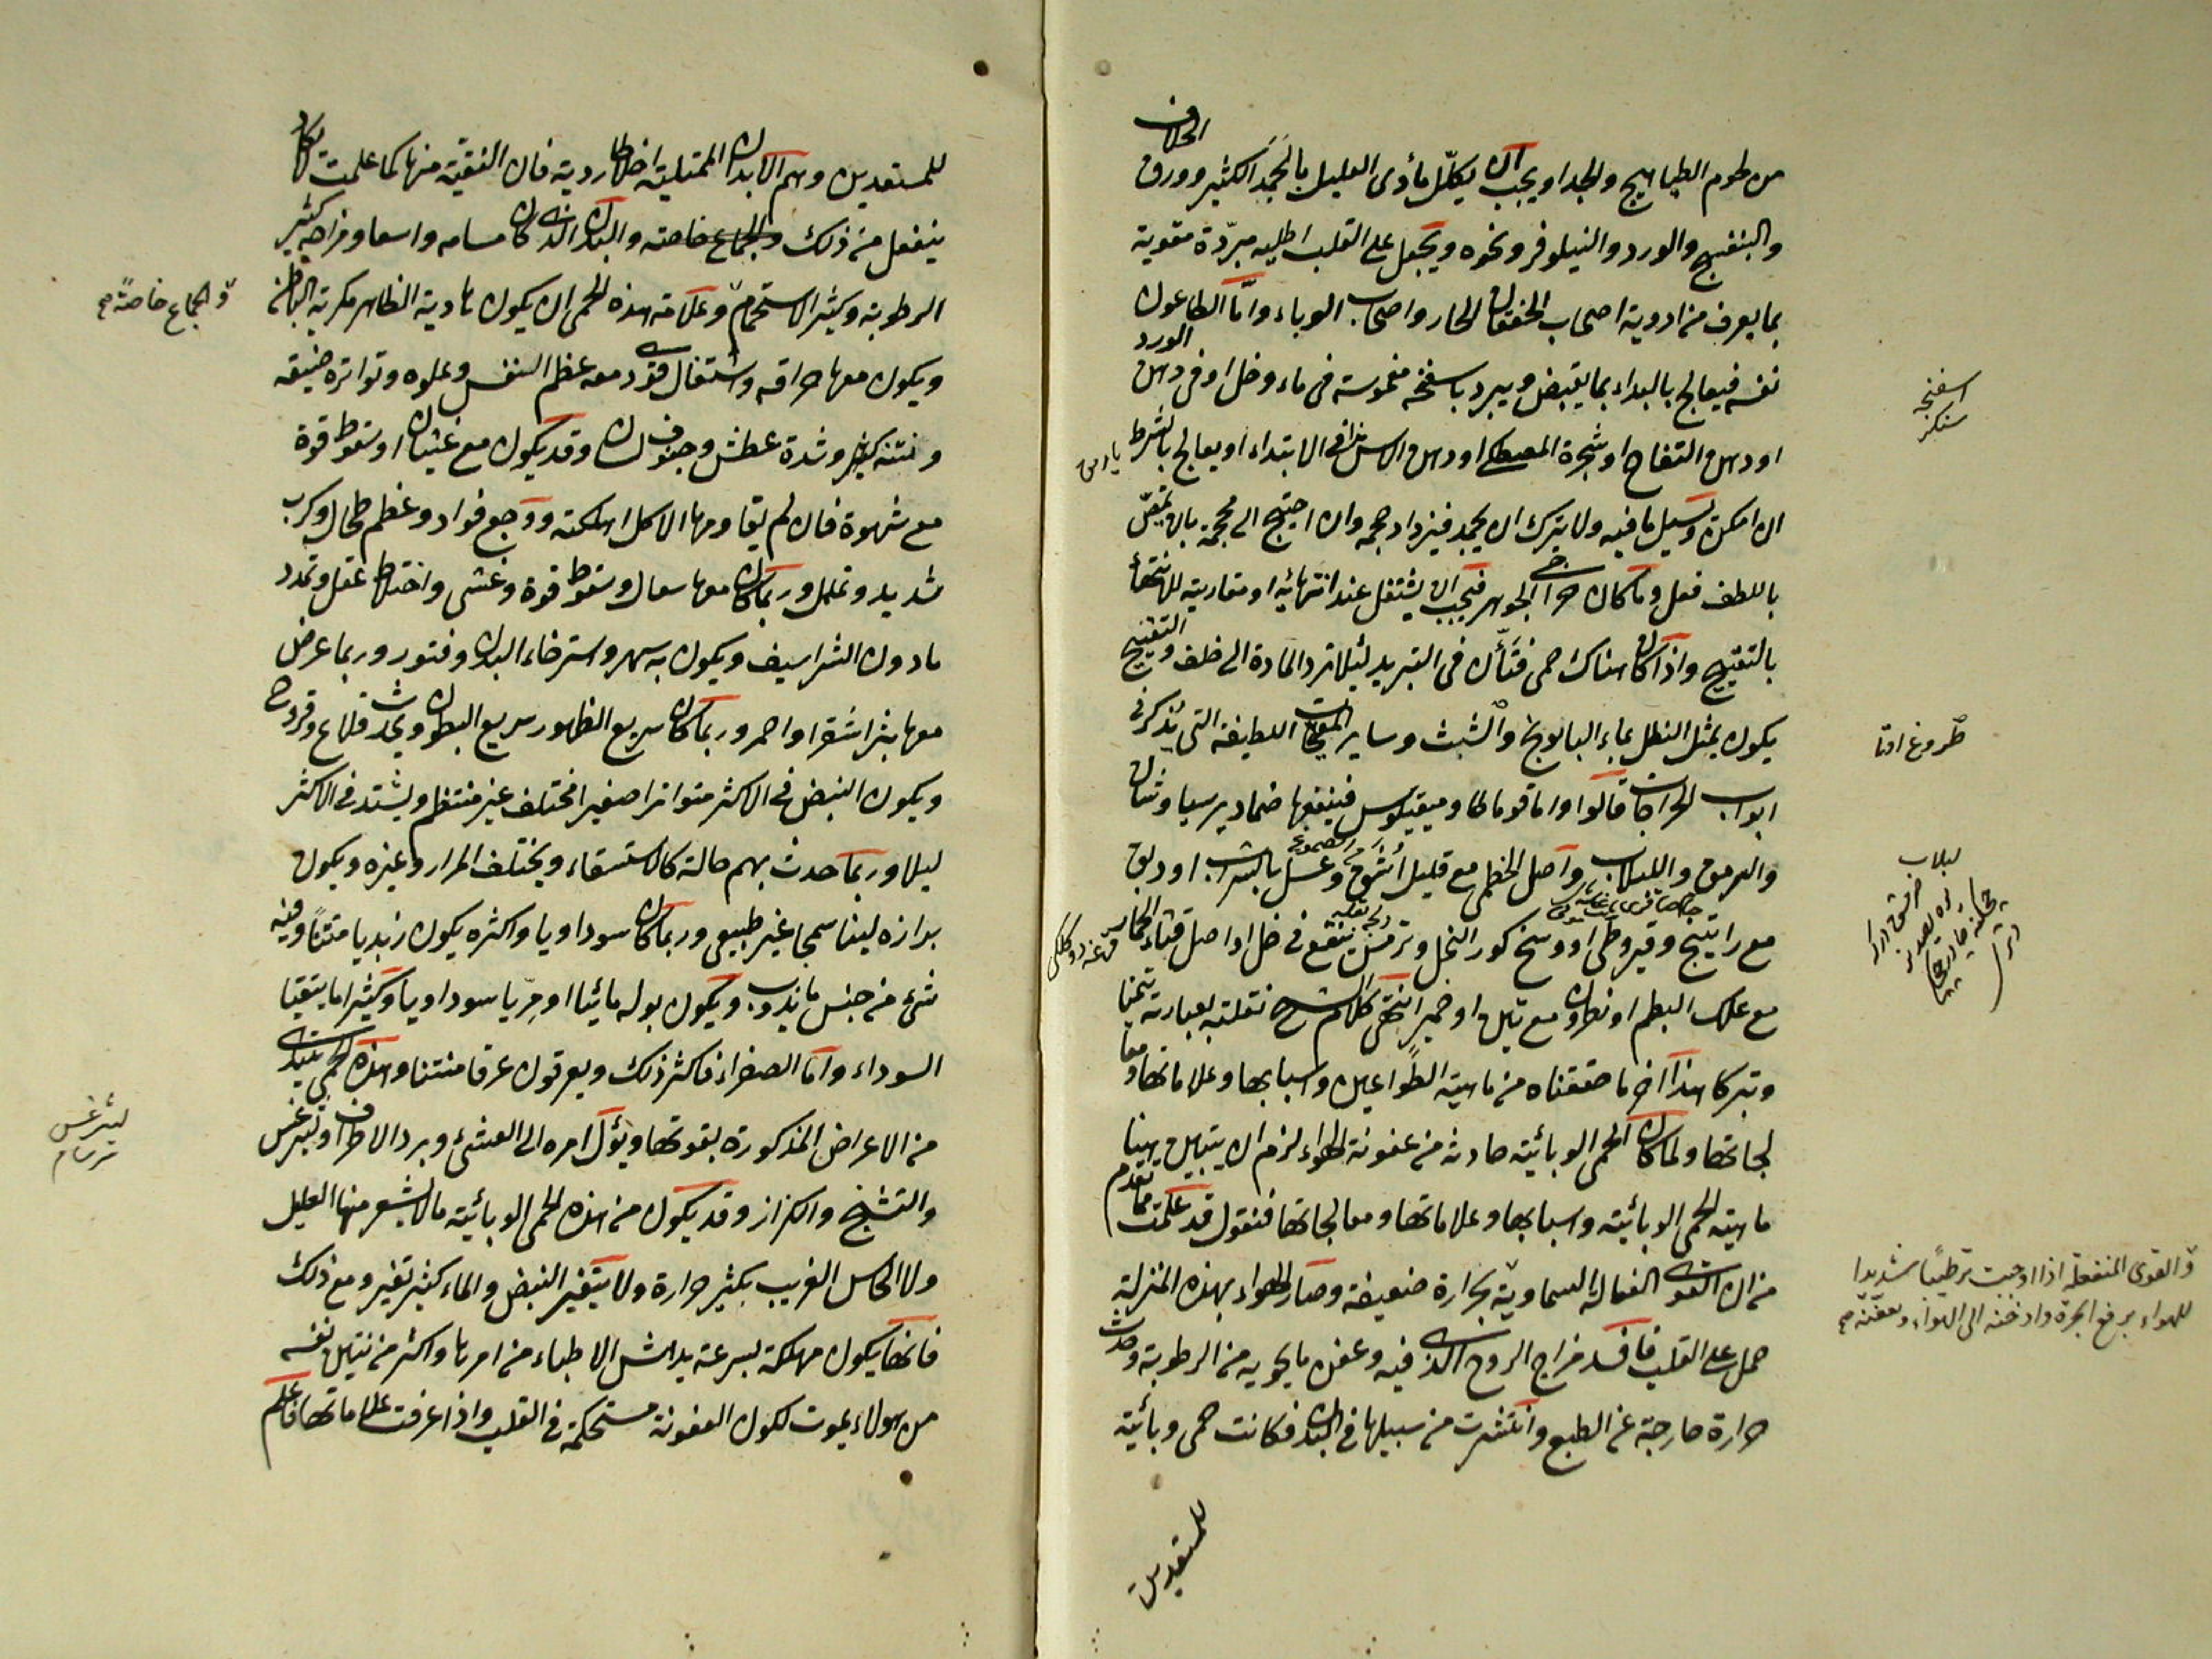 الخلاف
من لحوم الطياهيج والجدا ويجب ان يكلّل مأوى العليل بالجمد الكثير وورق
والبنفسج والورد والنيلوفر ونحوه ويجعل على القلب اطلية مبرّدة مقوية
بما يعرف من ادوية اصحاب الخفقان الحار واصحاب الوباء واما الطاعون
الورد
نفسه فيعالج بالبداء بما يقبض ويبرد باسفنجة مغموسة فى ماء وخل او فى دهن
او دهن التفاح او شجرة المصطكى او دهن الاس هذا فى الابتداء او يعالج بالشرط
ان امكن وتسيل ما فيه ولا يترك ان يجمد فيزداد سمية وان احتيج الى محجمة بان تمص
باللطف فعل وما كان خراجى الجوهر فيجب ان يشتغل عند انتهائه او مقاربة للانتهاء
بالتقييح واذا كان هناك حمى فتأن فى التبريد لئلا ترد المادة الى خلف والتقييح
يكون بمثل النطل بماء البابونج والشبث وساير المقيحات اللطيفة التى تذكر فى
ابواب الخراجات قالوا واما قوماطا وميقيكوس فينفعها ضماد برسياوشان
والسرمق واللبلاب واصل الخطمى مع قليل اشق وعسل بالشراب او دبق
مع راتينج وقيروطى او وسخ كور النحل وترمس ينقع فى خل او اصل قثاء الحمار
مع علك البطم او نطرون مع تين او خمير انتهى كلام الشيخ نقلته بعبارته تيمنا
وتبركا هذا اخر ما حققناه من ماهية الطواعين واسبابها وعلاماتها ومعا
لجاتها ولما كان الحمى الوبائية حادثة من عفونة الهواء لزم ان يتبين هنا
ماهية الحمى الوبائية واسبابها وعلاماتها ومعالجاتها فنقول قد علمت مما تقدم
من ان القوى الفعالة السماوية بحرارة ضعيفة وصار الهواء بهذه المنزلة
حمل على القلب فافسد مزاج الروح الذى فيه وعفن ما يحويه من الرطوبة وحدثت
حرارة خارجة عن الطبع وانتشرت من سبيلها فى البدن فكانت حمى وبائية
للمستعدين
اسفنجة
سنكر
لبلاب
والقوى المنفعلة اذا اوجبت ترطيبا شديدا
للهواء برفع ابخرة وادخنة الى الهواء وتعفنه صح
للمستعدين وهم الابدان الممتلية اخلاطا ردية فان النقية منها كما علمت لا تكاد
ينفعل من ذلك والجماع خاصة والبدن الذى كان مسامه واسعا ومزاجه كثير
الرطوبة وكثير الاستحمام وعلامة هذه الحمى ان يكون هادية الظاهر مكربة الباطن
ويكون معها حراقة واشتغال قوى معه عظم النفس وعلوه وتواتره ضيقه
ونتنه كثير وشدة عطش وجفاف لسان وقد يكون مع غثيان او سقوط قوة
مع شهوة فان لم يقاومها الاكل اهلكته ووجع فواد وعظم طحال وكرب
شديد وتململ وربما كان معها سعال وسقوط قوة وغشى واختلاط عقل وتمدد
ما دون الشراسيف ويكون به سهر واسترخاء البدن وفتور وربما عرض
معها بثر اشقر او احمر وربما كان سريع الظهور سريع البطون ويحدث قلاع وقروح
ويكون النبض فى الاكثر متواترا صغيرا مختلف غير منتظم ويشتد فى الاكثر
ليلا وربما حدث بهم حالة كالاستسقاء ويختلف المرار وغيره ويكون
برازه لينا سمجا غير طبيعى وربما كان سوداويا واكثره يكون زبديا منتنا وفيه
شئ من جنس ما يذوب ويكون بوله مائيا او مريا سوداويا وكثيرا ما يتقيا
السوداء واما الصفراء فاكثر ذلك ويعرقون عرقا منتنا وهذه الحمى تبتدى
من الاعراض المذكورة بقوتها ويؤل امره الى الغشى وبرد الاطراف وليثرغس
والتشنج والكزاز وقد يكون من هذه الحمى الوبائية ما لا يشعر منها العليل
ولا الحاس الغريب بكثير حرارة ولا يتغير النبض والماء كثير تغير ومع ذلك
فانها يكون مهلكة بسرعة يدهش الاطباء من امرها واكثر من نتن نفسه
من هولاء يموت لكون العفونة مستحكمة فى القلب واذا عرفت علاماتها فاعلم
والجماع خاصة صح
ليثرغس
سرسام